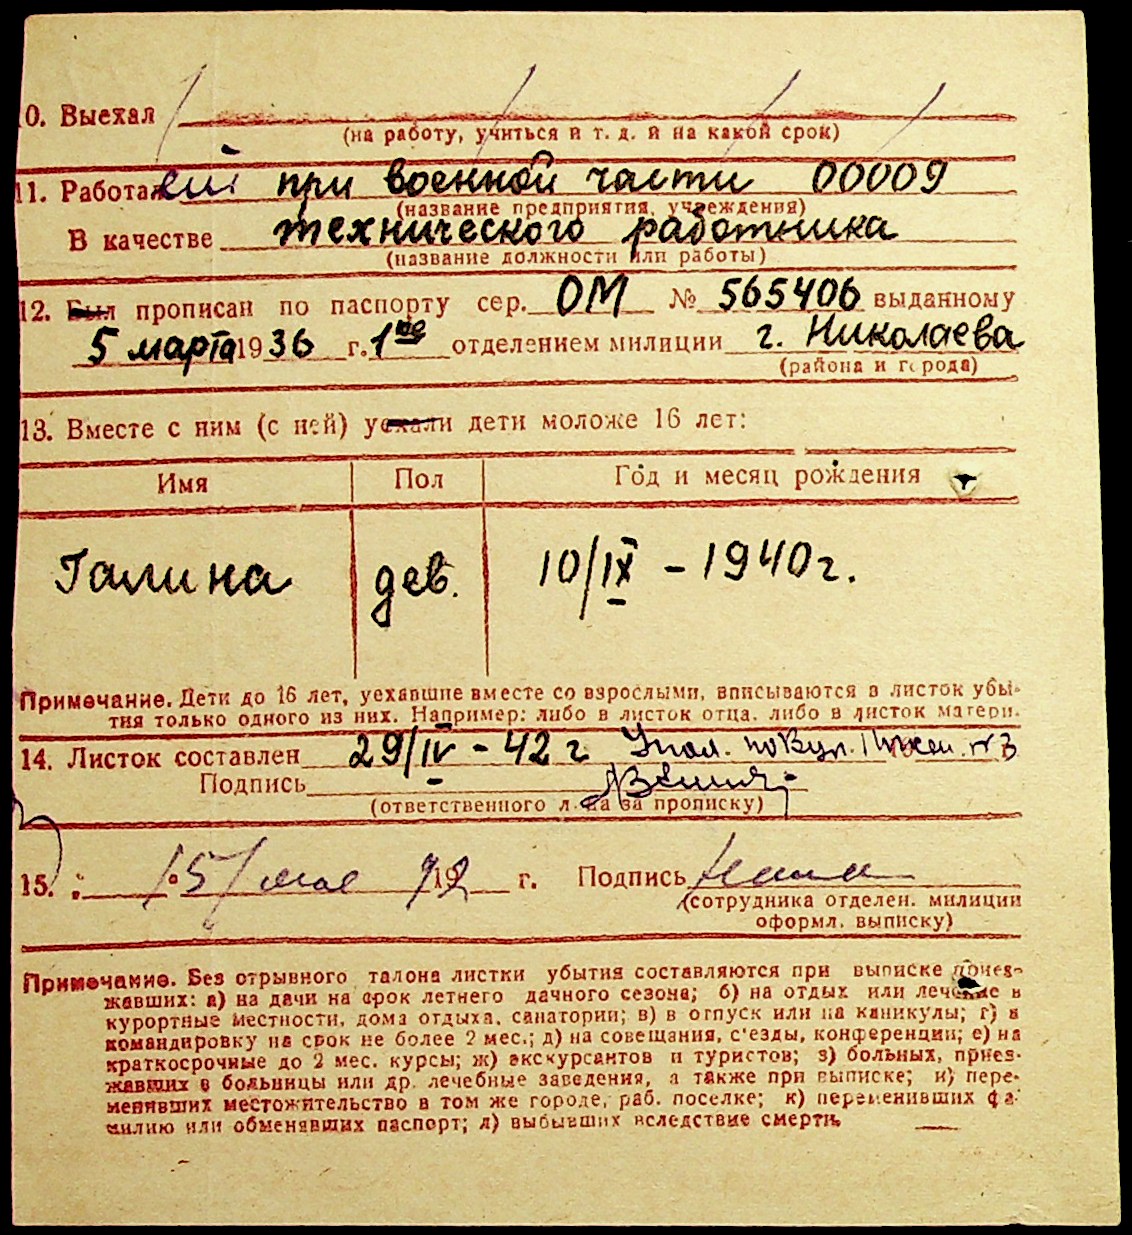 10. Выехал
(на работу, учиться и т. д. и на какой срок)
11. Работал при военной части 00009
(название предприятия, учреждения)
В качестве технического работника
(название должности или работы)
12. Был прописан по паспорту сер. ОМ № 565406 выданному
5 марта 1936 г. 1ое отделением милиции г. Николаева
(района и города)
13. Вместе с ним (с ней) уехали дети моложе 16 лет:
Имя Пол Год и месяц рождения
Галина дев. 10/IX - 1940 г.
Примечание. Дети до 16 лет, уехавшие вместе со взрослыми, вписываются в листок убы-
тия только одного из них. Например: либо в листок отца, либо в листок матери.
14. Листок составлен 29/IV - 42 г.
Подпись
(ответственного лица за прописку)
15. " 5 " мая 1942 г. Подпись
(сотрудника отделен. милиции
оформл. выписку)
Примечание. Без отрывного талона листки убытия составляются при выписке приез-
жавших: а) на дачи на срок летнего дачного сезона; б) на отдых или лечение в
курортные местности, дома отдыха, санатории; в) в отпуск или на каникулы; г) в
командировку на срок не более 2 мес.; д) на совещания, с'езды, конференции; е) на
краткосрочные до 2 мес. курсы; ж) экскурсантов и туристов; з) больных, приез-
жавших в больницы или др. лечебные заведения, а также при выписке; и) пере-
менивших местожительство в том же городе, раб. поселке; к) переменивших фа-
милию или обменявших паспорт; л) выбывших вследствие смерти.